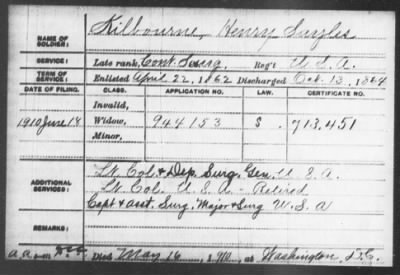 NAME OF SOLDIER: Kilbourne, Henry Sayles
SERVICE: Late rank, Cont. Surg, Reg't U.S.A.
TERM OF SERVICE: Enlisted April 22, 1862 Discharged Oct. 13, 1864
DATE OF FILING. CLASS. APPLICATION NO. LAW. CERTIFICATE NO.
Invalid,
1910 June 18 Widow, 944153 S. 713,451
Minor,
ADDITIONAL SERVICES: Lt. Col. & Dep. Surg. Gen. U.S.A.
Lt. Col. U.S.A - Retired
Capt & asst. Surg. Major & Surg U.S.A
REMARKS:
Died May 16, 1910, at Washington, D.C.